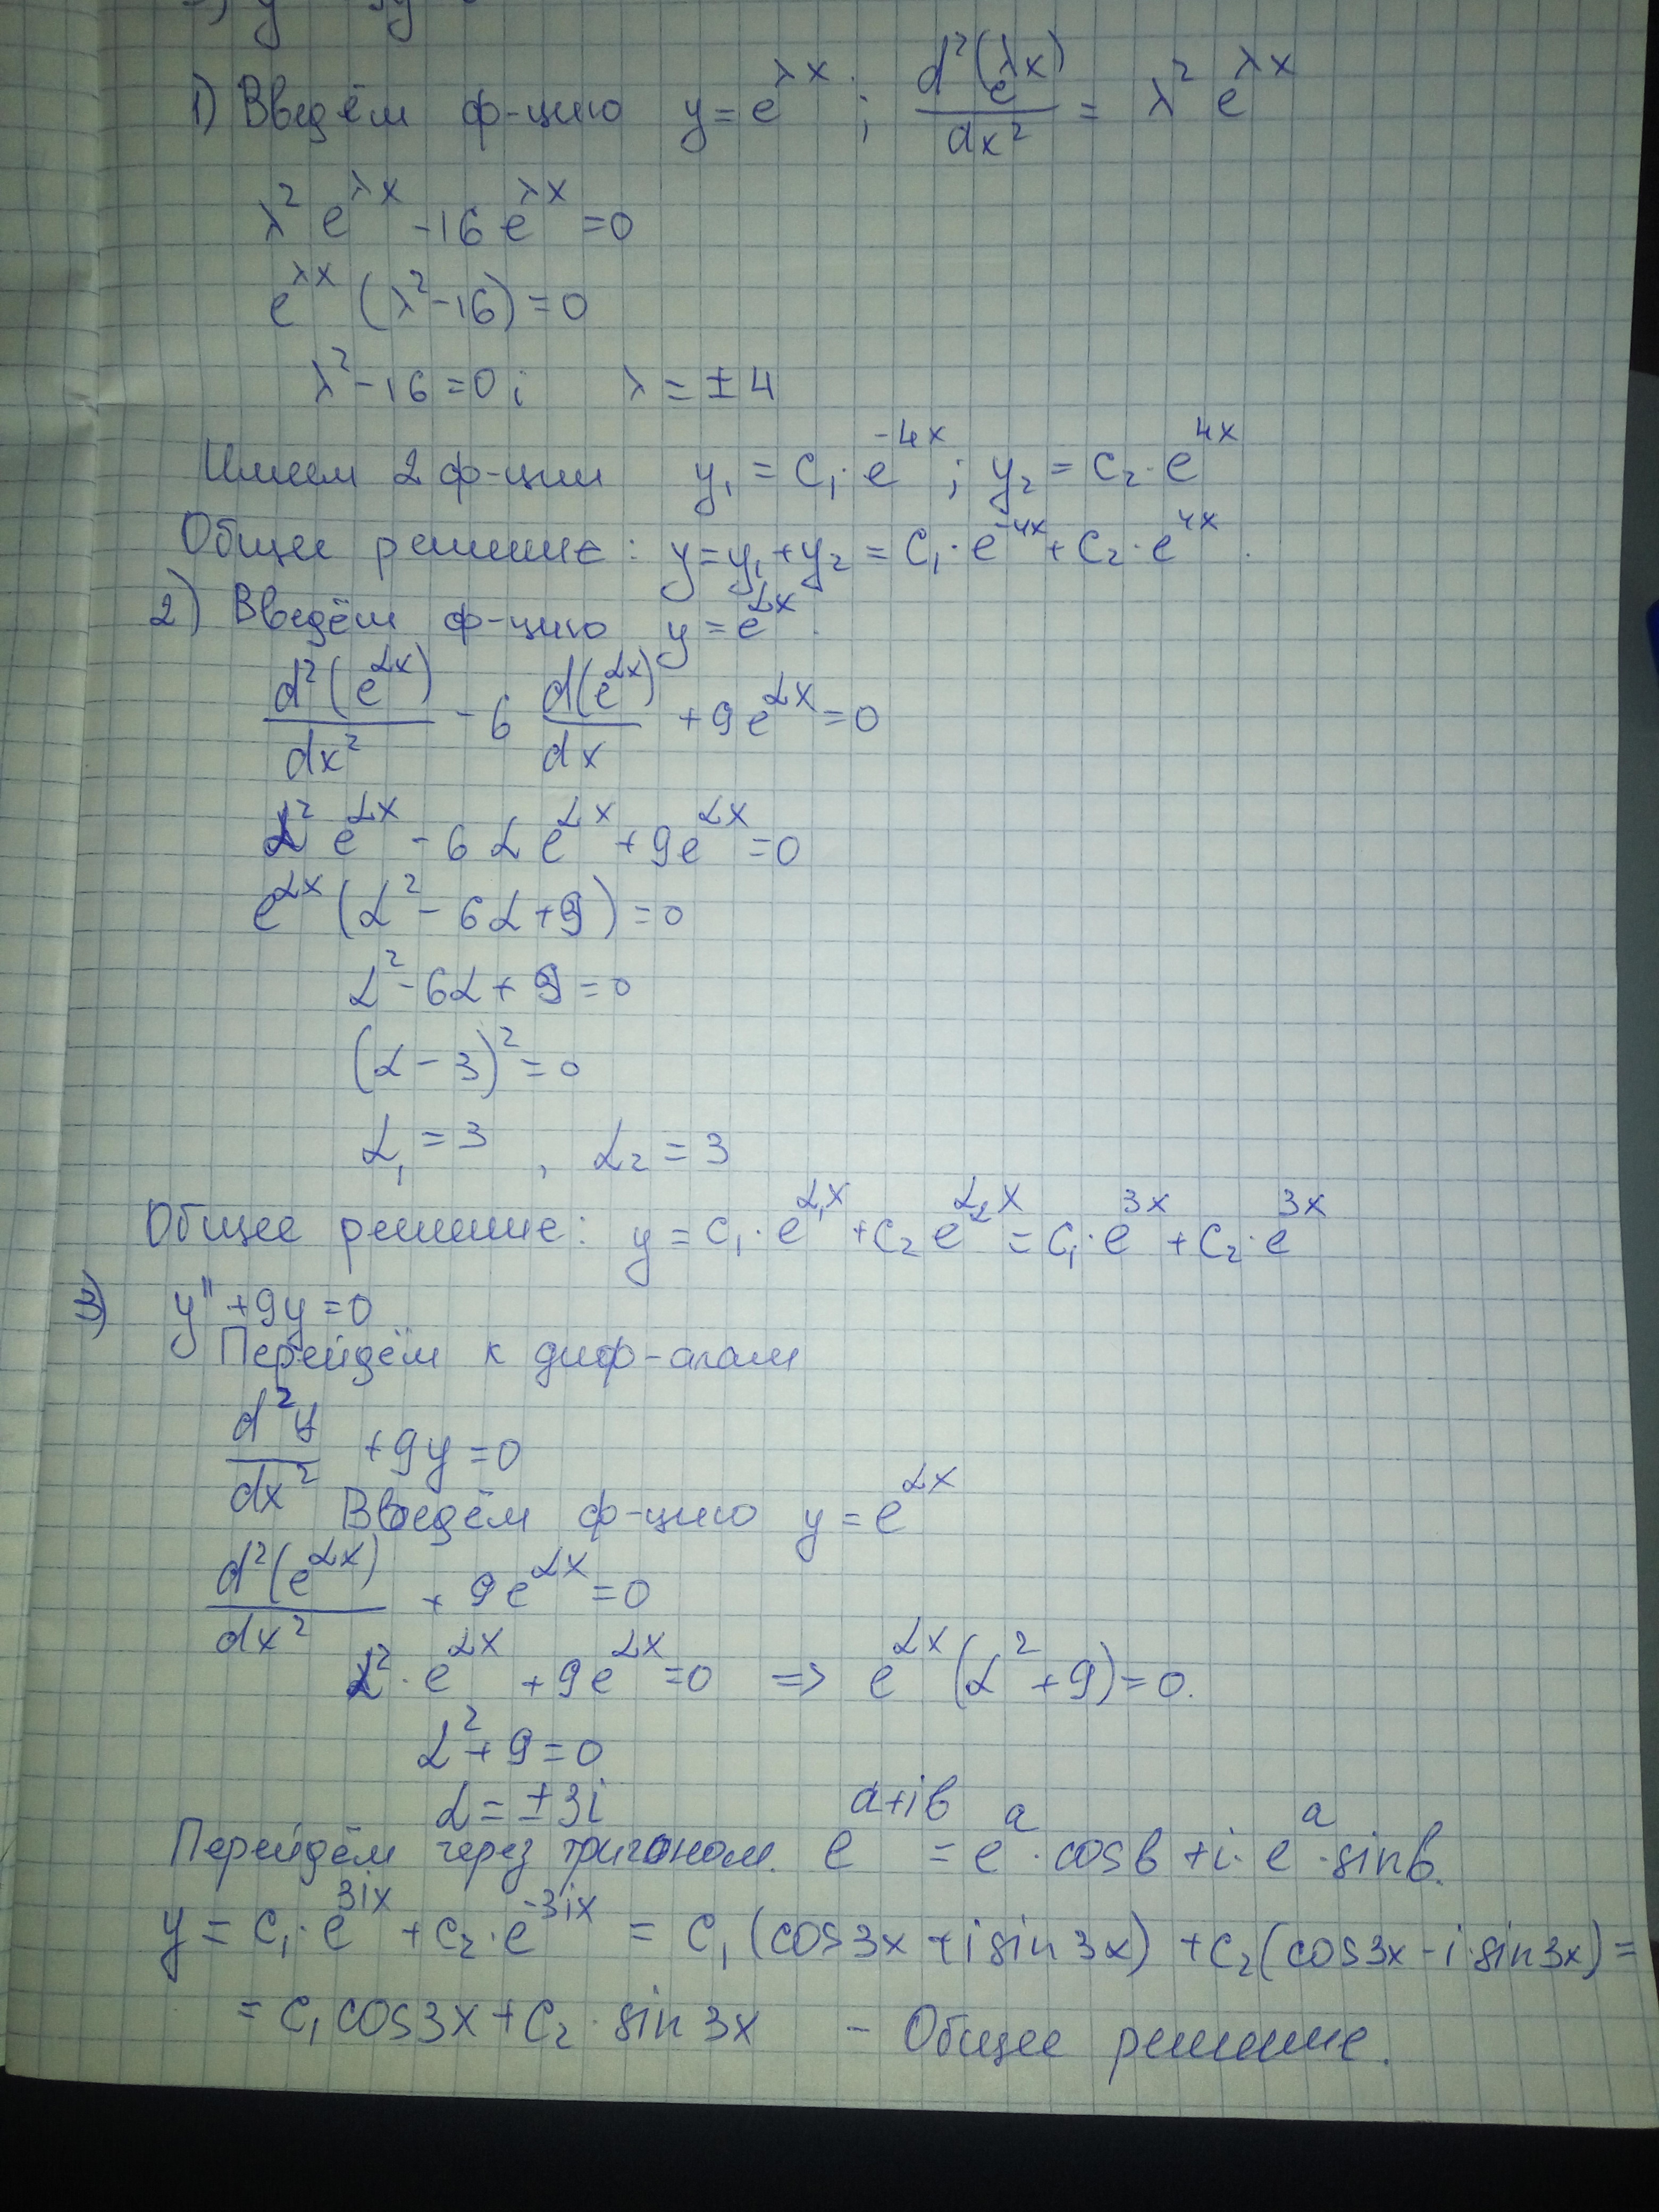 1) Введём ф-цию y = e^{λx}; d²(e^{λx})/dx² = λ² e^{λx}
λ² e^{λx} - 16 e^{λx} = 0
e^{λx} (λ² - 16) = 0
λ² - 16 = 0; λ = ± 4
Имеем 2 ф-ции y₁ = C₁· e^{-4x}; y₂ = C₂· e^{4x}
Общее решение: y = y₁ + y₂ = C₁· e^{-4x} + C₂· e^{4x}.
2) Введём ф-цию y = e^{αx}.
d²(e^{αx})/dx² - 6 d(e^{αx})/dx + 9e^{αx} = 0
α² e^{αx} - 6 α e^{αx} + 9e^{αx} = 0
e^{αx} (α² - 6α + 9) = 0
α² - 6α + 9 = 0
(α - 3)² = 0
α₁ = 3, α₂ = 3
Общее решение: y = C₁· e^{α₁x} + C₂ e^{α₂x} = C₁· e^{3x} + C₂· e^{3x}
3) y'' + 9y = 0
Перейдём к диф-алам
d²y/dx² + 9y = 0
Введём ф-цию y = e^{αx}
d²(e^{αx})/dx² + 9e^{αx} = 0
α²· e^{αx} + 9e^{αx} = 0 => e^{αx} (α² + 9) = 0.
α² + 9 = 0
α = ± 3i
Перейдём через тригоном. e^{a+ib} = e^{a}· cos b + i· e^{a}· sin b.
y = C₁· e^{3ix} + C₂· e^{-3ix} = C₁ (cos 3x + i sin 3x) + C₂ (cos 3x - i· sin 3x) =
= C₁ cos 3x + C₂· sin 3x - Общее решение.